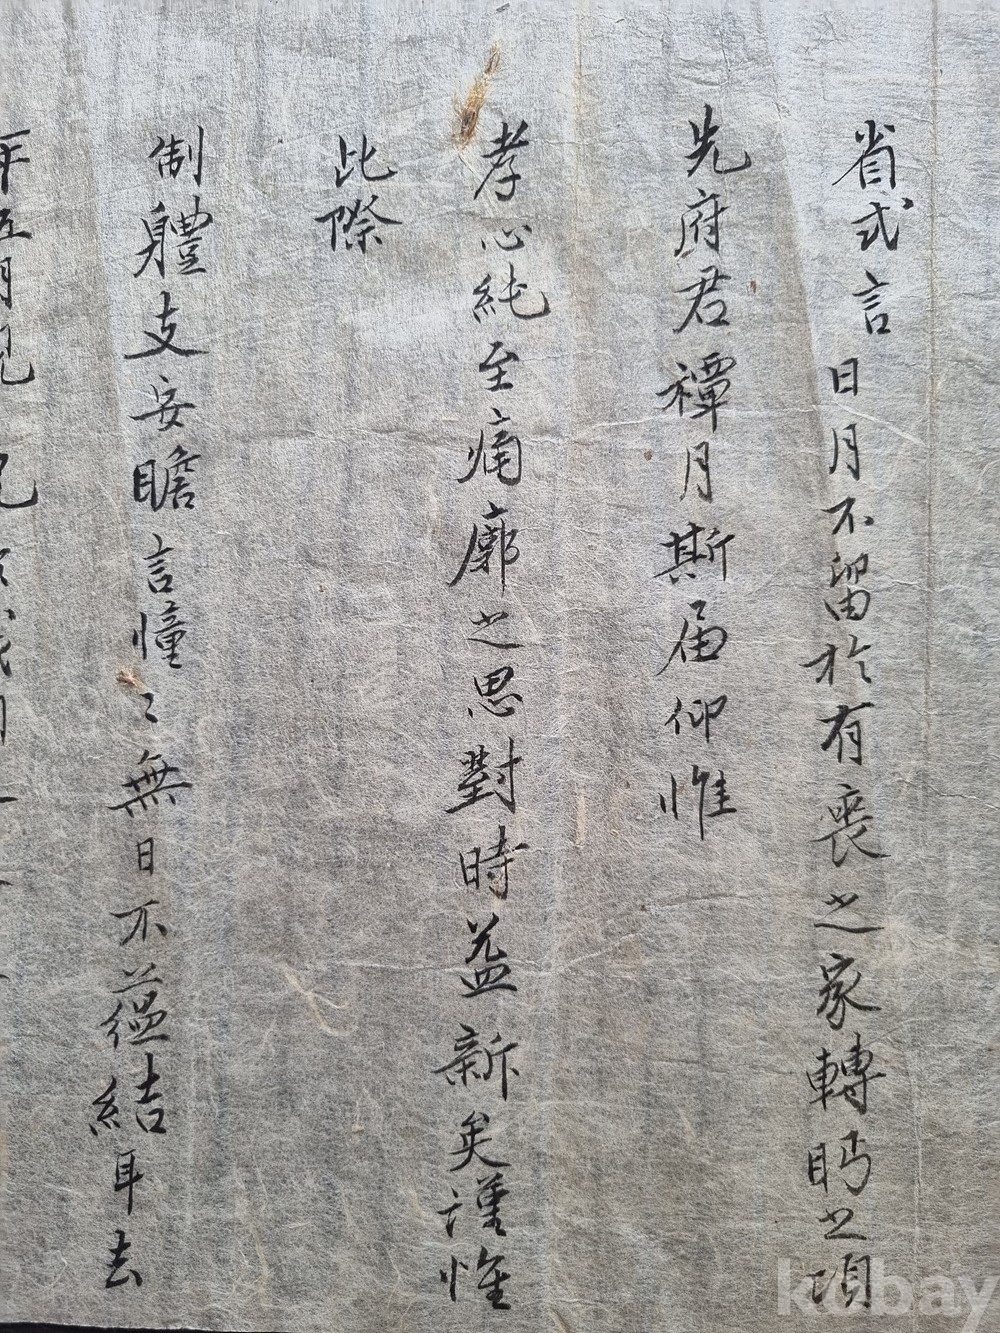 省式言日月不留於有喪之家轉眄之頃
先府君禫月斯届仰惟
孝心純至痛廓之思對時益新矣謹惟
此際
制體支安瞻言憧〻無日不蘊結耳去
年五月
kobay